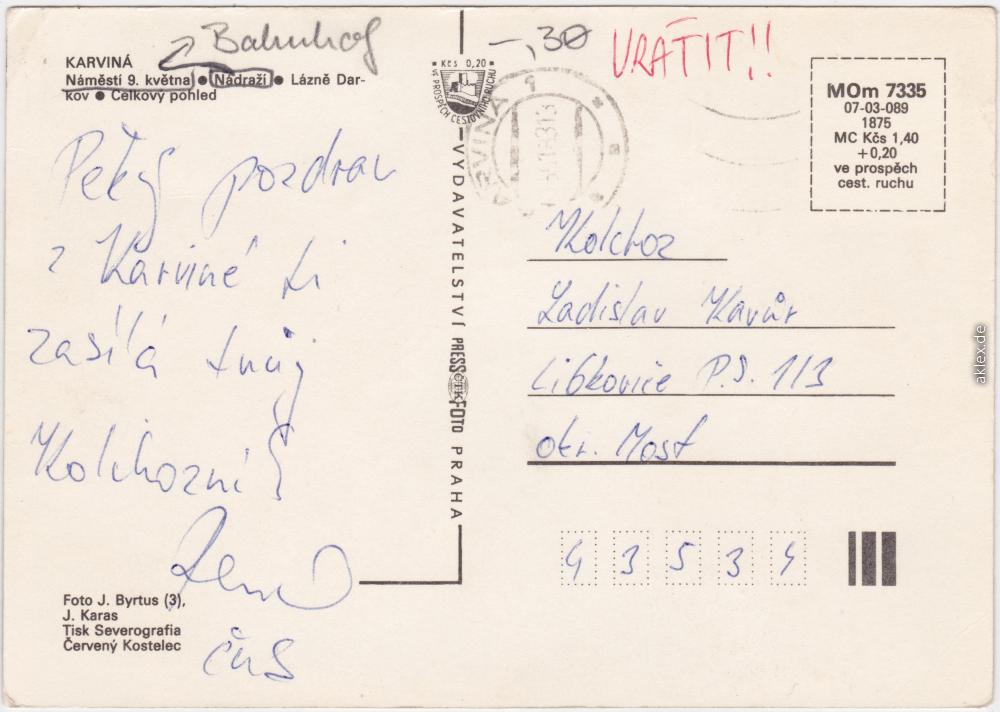 Bahnhof
-,30
VRÁTIT!!
KARVINÁ
Náměstí 9. května ● Nádraží ● Lázně Dar-
kov ● Celkový pohled
Kčs 0,20
VE PROSPĚCH CESTOVNÍHO RUCHU
KARVINÁ 1
MOm 7335
07-03-089
1875
MC Kčs 1,40
+0,20
ve prospěch
cest. ruchu
Pěkný pozdrav
z Karviné ti
zasílá tvůj
Kolchozní
ČUS
VYDAVATELSTVÍ PRESSFOTO PRAHA
ČTK
Kolchoz
Ladislav Kavúr
Libkovice P.S. 113
okr. Most
4 3 5 3 4
Foto J. Byrtus (3),
J. Karas
Tisk Severografia
Červený Kostelec
aklex.de